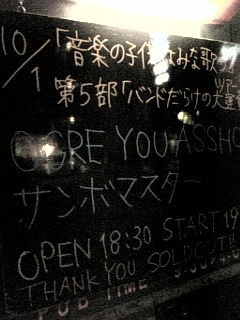 10/1
「音楽の子供はみな歌う」
第5部「バンドだらけの大
OGRE YOU ASSHO
サンボマスター
OPEN 18:30 START 19
THANK YOU SOLDOUT!!
PUB TIME